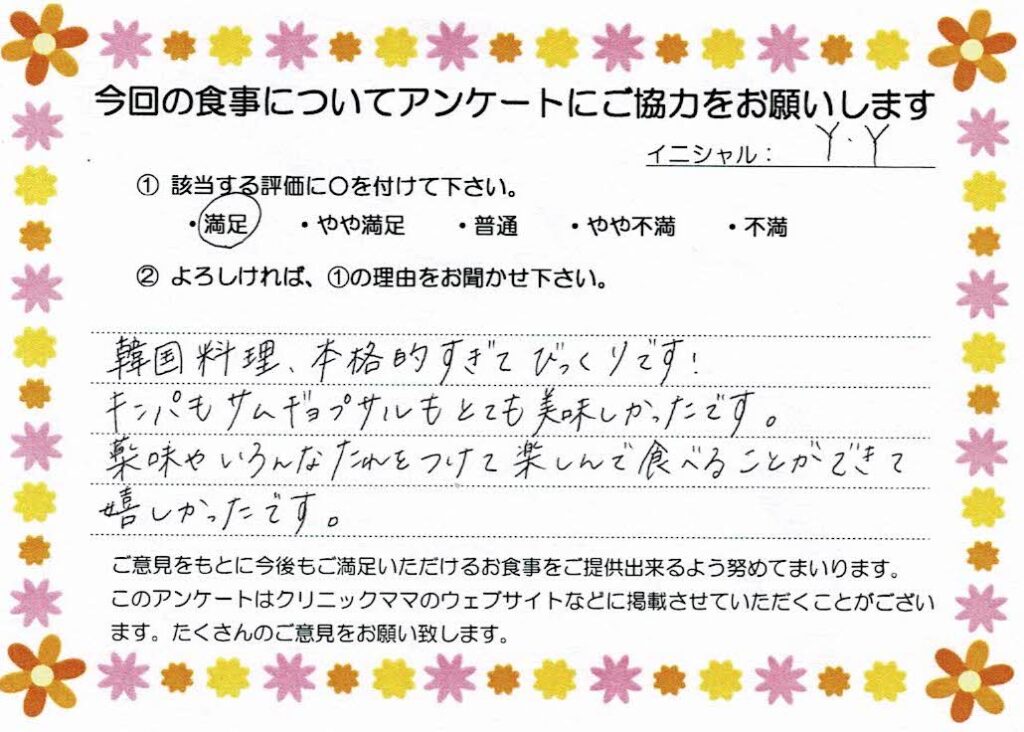 今回の食事についてアンケートにご協力をお願いします
イニシャル: Y.Y
① 該当する評価に○を付けて下さい。
・満足 ・やや満足 ・普通 ・やや不満 ・不満
② よろしければ、①の理由をお聞かせ下さい。
韓国料理、本格的すぎてびっくりです!
キンパもサムギョプサルもとても美味しかったです。
薬味やいろんなたれをつけて楽しんで食べることができて
嬉しかったです。
ご意見をもとに今後もご満足いただけるお食事をご提供出来るよう努めてまいります。
このアンケートはクリニックママのウェブサイトなどに掲載させていただくことがござい
ます。たくさんのご意見をお願い致します。